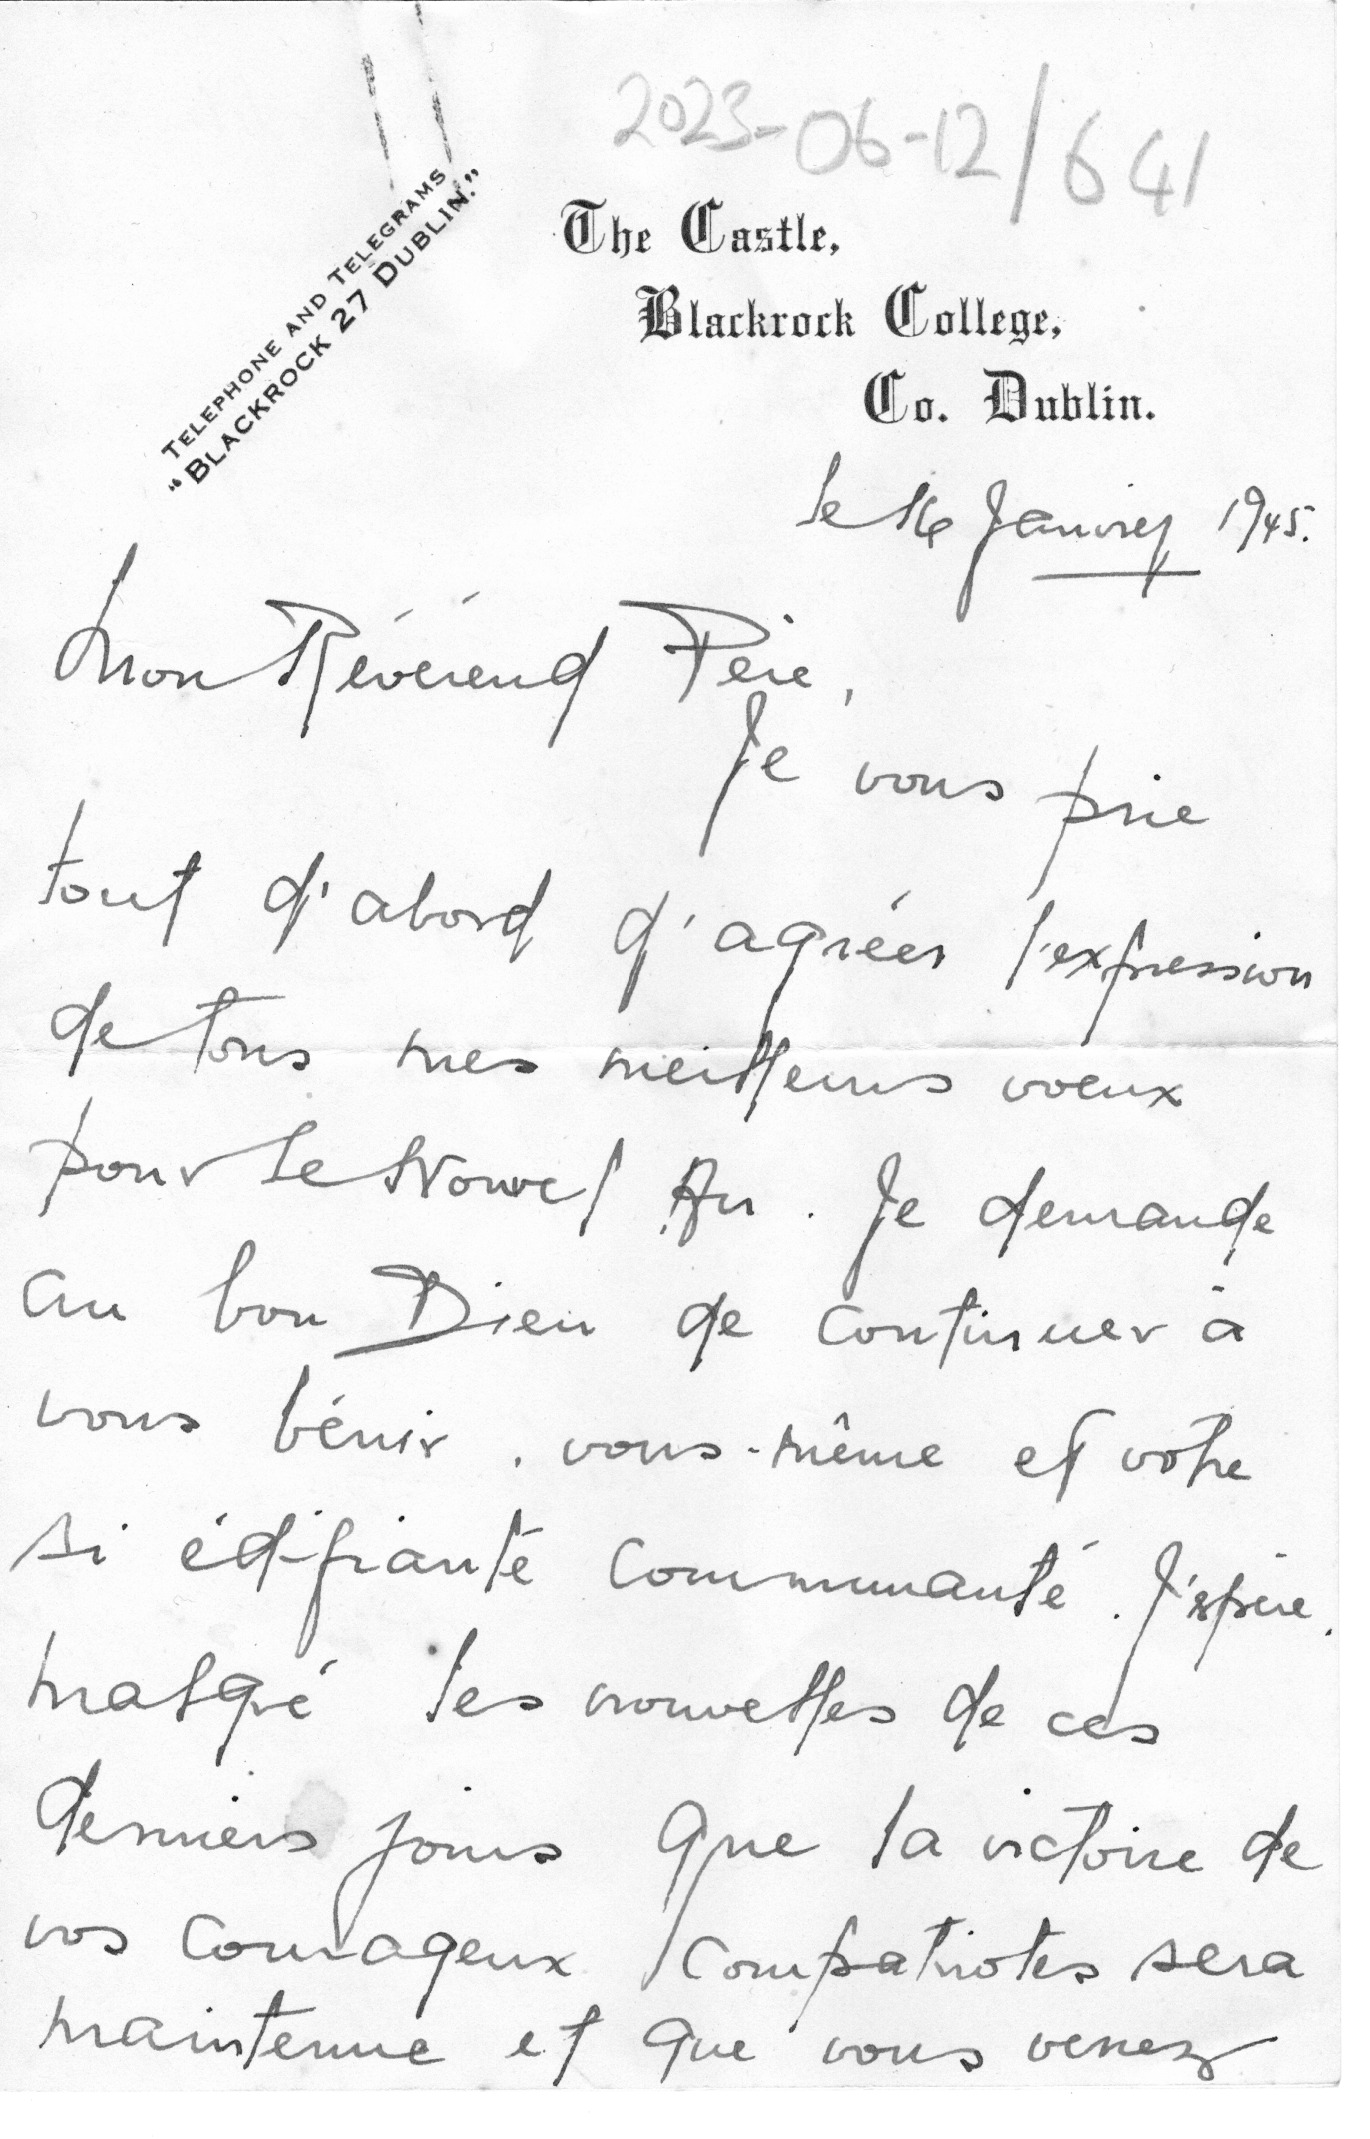 2023-06-12/641
TELEPHONE AND TELEGRAMS
"BLACKROCK 27 DUBLIN."
The Castle,
Blackrock College,
Co. Dublin.
le 16 Janvier 1945.
Mon Révérend Père,
Je vous prie
tout d'abord d'agréer l'expression
de tous mes meilleurs voeux
pour le Nouvel An. Je demande
au bon Dieu de continuer à
vous bénir, vous-même et votre
si édifiante Communauté. J'espère,
malgré les nouvelles de ces
derniers jours que la victoire de
vos Courageux Compatriotes sera
maintenue et que vous verrez